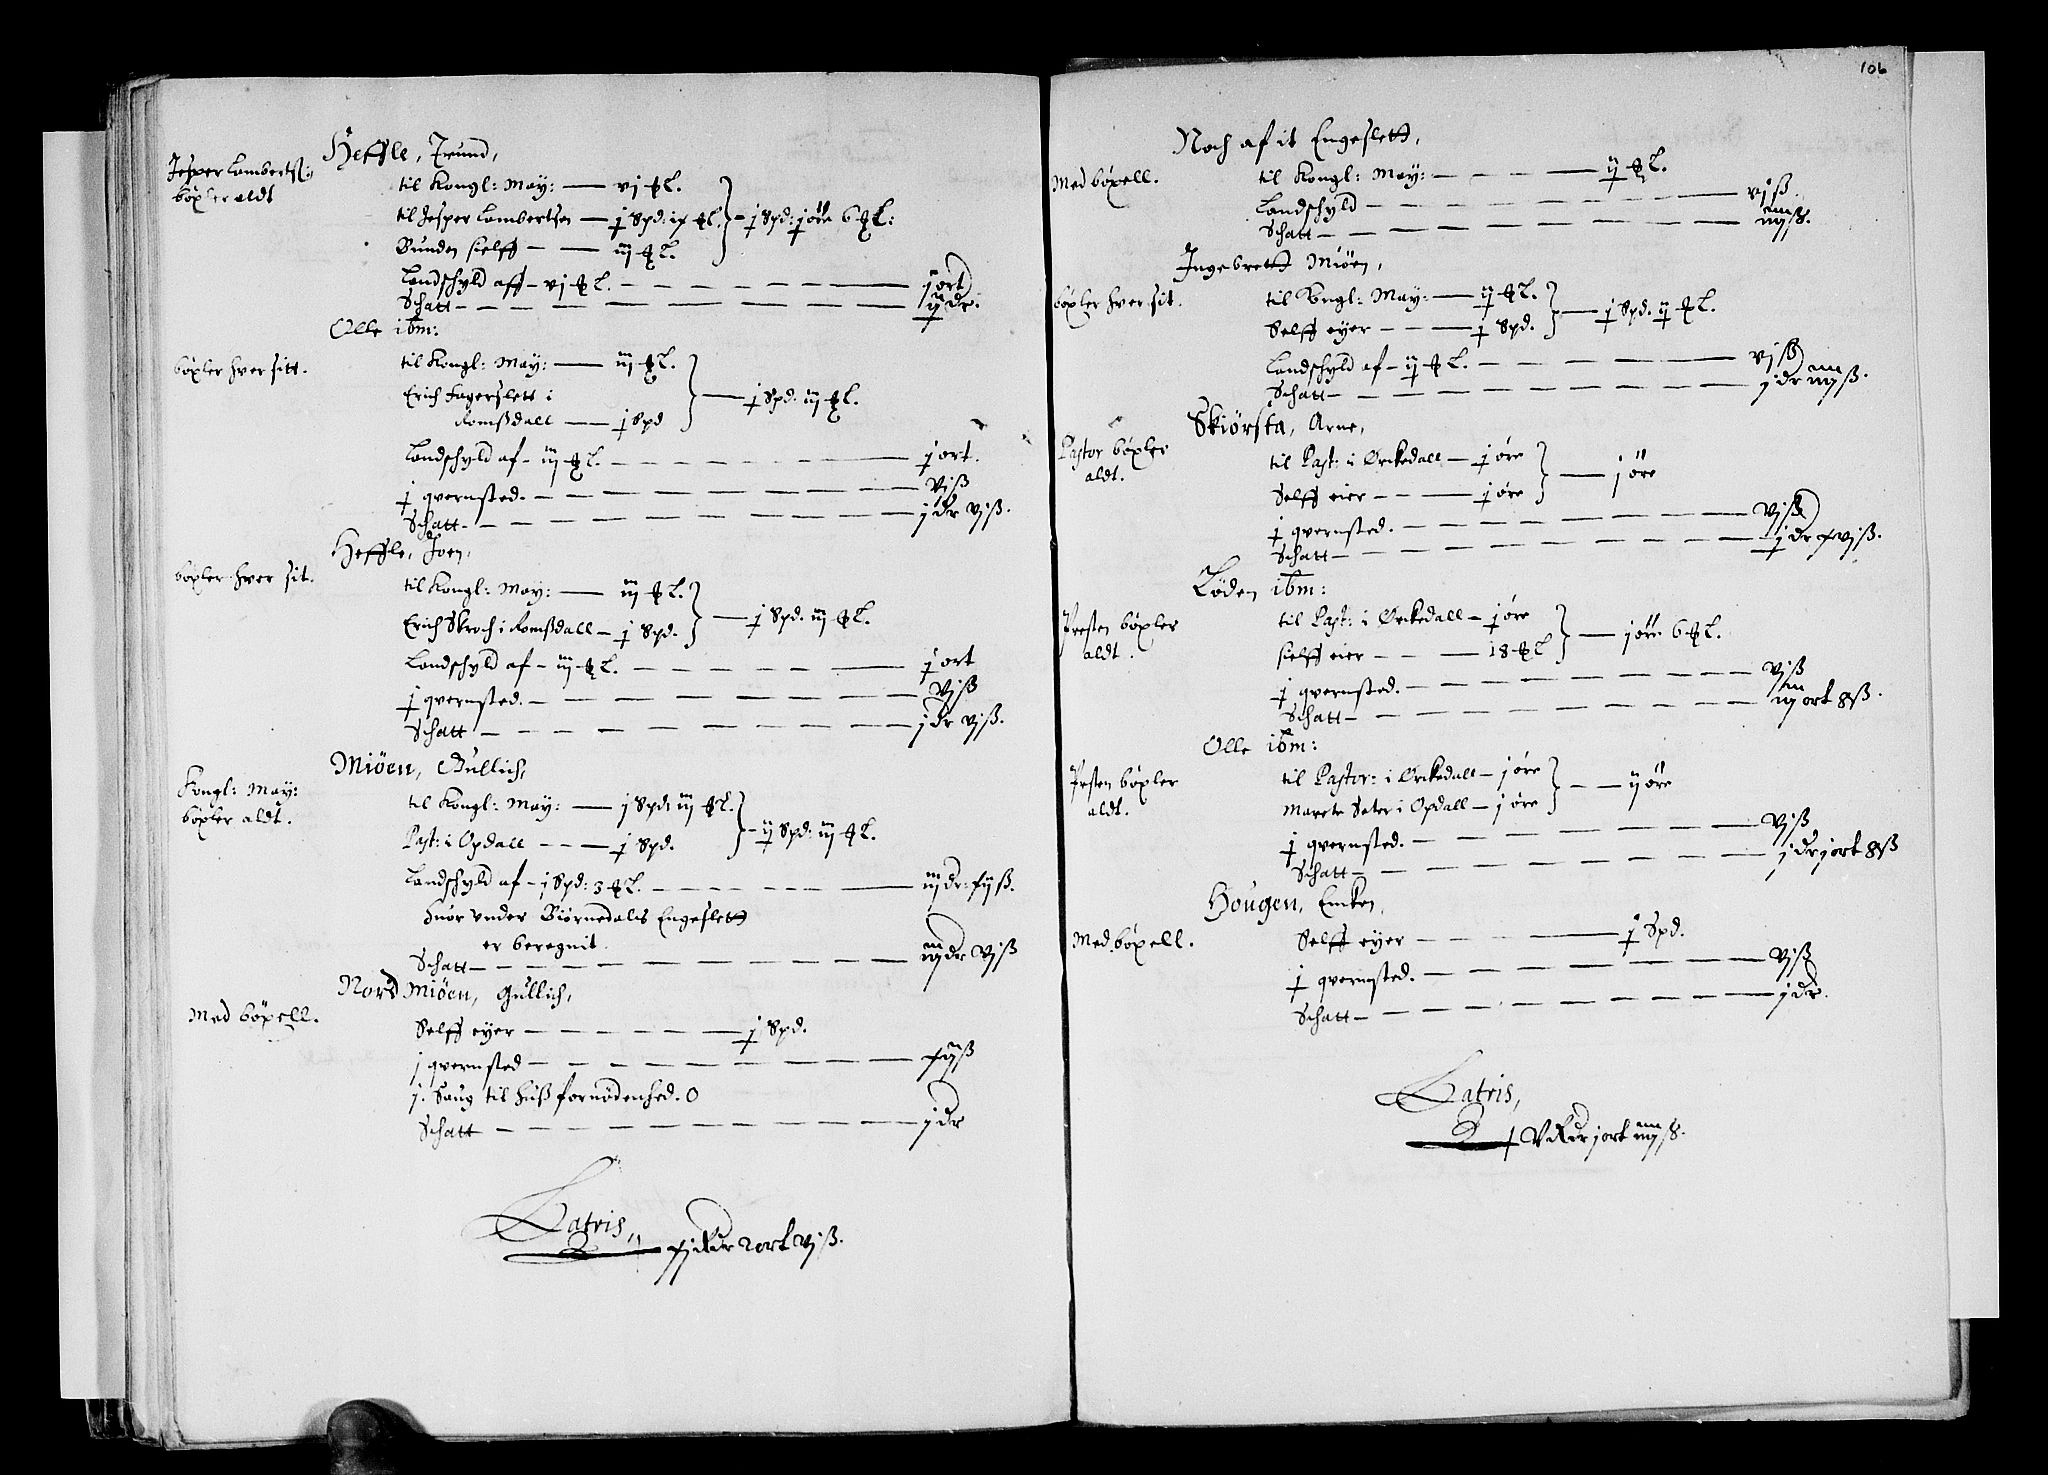 Heffle, Trund,
Jesper Lambertß:
böxler aldt
til Kongl: May: — vj ℔ L.
til Jesper Lambertsen — j Spd: ix ℔ L. — j Spd: j öre 6 ℔ L:
Bunden sielff — — iij ℔ L.
Landschyld aff — vj ℔ L. — j ort
Schatt — ij dr.
Olle ibm:
böxler hver sitt.
til Kongl: May: — iij ℔ L.
Erich Fagerslett i
Romßdall — j Spd — j Spd. iij ℔ L.
Landschyld af — iij ℔ L. — j ort.
j qvernsted. — vj ß
Schatt — j dr vj ß.
Heffle, Joen,
böxler hver sit.
til Kongl: May: — iij ℔ L.
Erich Skroch i Romßdall — j Spd. — j Spd. iij ℔ L.
Landschyld af — iij ℔ L. — j ort
j qvernsted. — vj ß
Schatt — j dr vj ß.
Miöen, Gullich,
Kongl: May:
böxler aldt.
til Kongl: May: — j Spd: iij ℔ L.
Past: i Opdall — j Spd. — ij Spd: iij ℔ L.
Landschyld af — j Spd: 3 ℔ L. — iij dr: xij ß.
huor under Biörnedalls Engeslett
er beregnit.
Schatt — iiij dr vj ß
Nord Miöen, Gullich,
Med böxell.
Selff eyer — j Spd.
j qvernsted — xij ß
j. Saug til huß fornödenhed. 0
Schatt — j dr
Latris,
xj Rdr 2 ort vj ß.
106
Noch af it Engeslett,
Med böxell.
til Kongl: May: — ij ℔ L.
Landschyld — vj ß.
Schatt — iiij ß.
Ingebrett Miöen,
böxler hver sit.
til Kongl: May: — ij ℔ L.
Selff eyer — j Spd. — j Spd. ij ℔ L.
Landschyld af — ij ℔ L. — vj ß
Schatt — j dr iiij ß.
Skiörsta, Arne,
Pastor böxler
aldt.
til Past: i Orckedall — j öre
Selff eier — j öre — ij öre
j qvernsted. — vj ß
Schatt — j dr xvj ß.
Löden ibm:
Presten böxler
aldt.
til Past: i Orckedall — j öre
sielff eier — 18 ℔ L — j öre 6 ℔ L.
j qvernsted. — vj ß
Schatt — iij ort 8 ß.
Olle ibm:
Presten böxler
aldt.
til Pastor: i Orckedall — j öre
Marete Seter i Opdall — j öre — ij öre
j qvernsted. — vj ß
Schatt — j dr j ort 8 ß
Hougen,
Med böxell.
Selff eyer — j Spd.
j qvernsted. — vj ß
Schatt — j dr.
Latris,
j ort iiij ß.